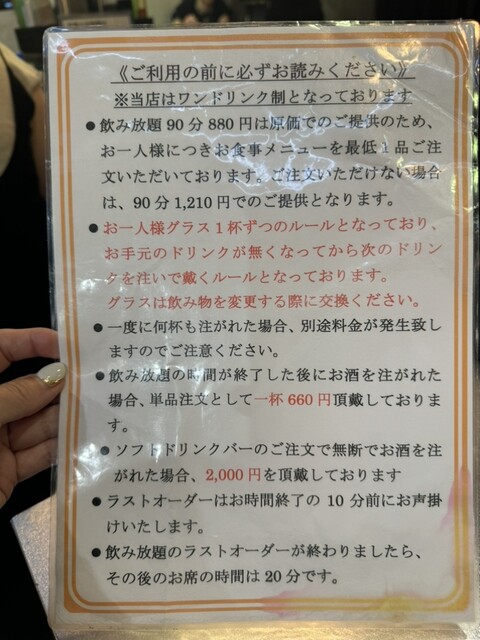 《ご利用の前に必ずお読みください》
※当店はワンドリンク制となっております
●飲み放題90分880円は原価でのご提供のため、
お一人様につきお食事メニューを最低1品ご注
文いただいております。ご注文いただけない場合
は、90分1,210円でのご提供となります。
●お一人様グラス1杯ずつのルールとなっており、
お手元のドリンクが無くなってから次のドリン
クを注いで戴くルールとなっております。
グラスは飲み物を変更する際に交換ください。
●一度に何杯も注がれた場合、別途料金が発生致し
ますのでご注意ください。
●飲み放題の時間が終了した後にお酒を注がれた
場合、単品注文として一杯660円頂戴しておりま
す。
●ソフトドリンクバーのご注文で無断でお酒を注
がれた場合、2,000円を頂戴しております
●ラストオーダーはお時間終了の10分前にお声掛
けいたします。
●飲み放題のラストオーダーが終わりましたら、
その後のお席の時間は20分です。